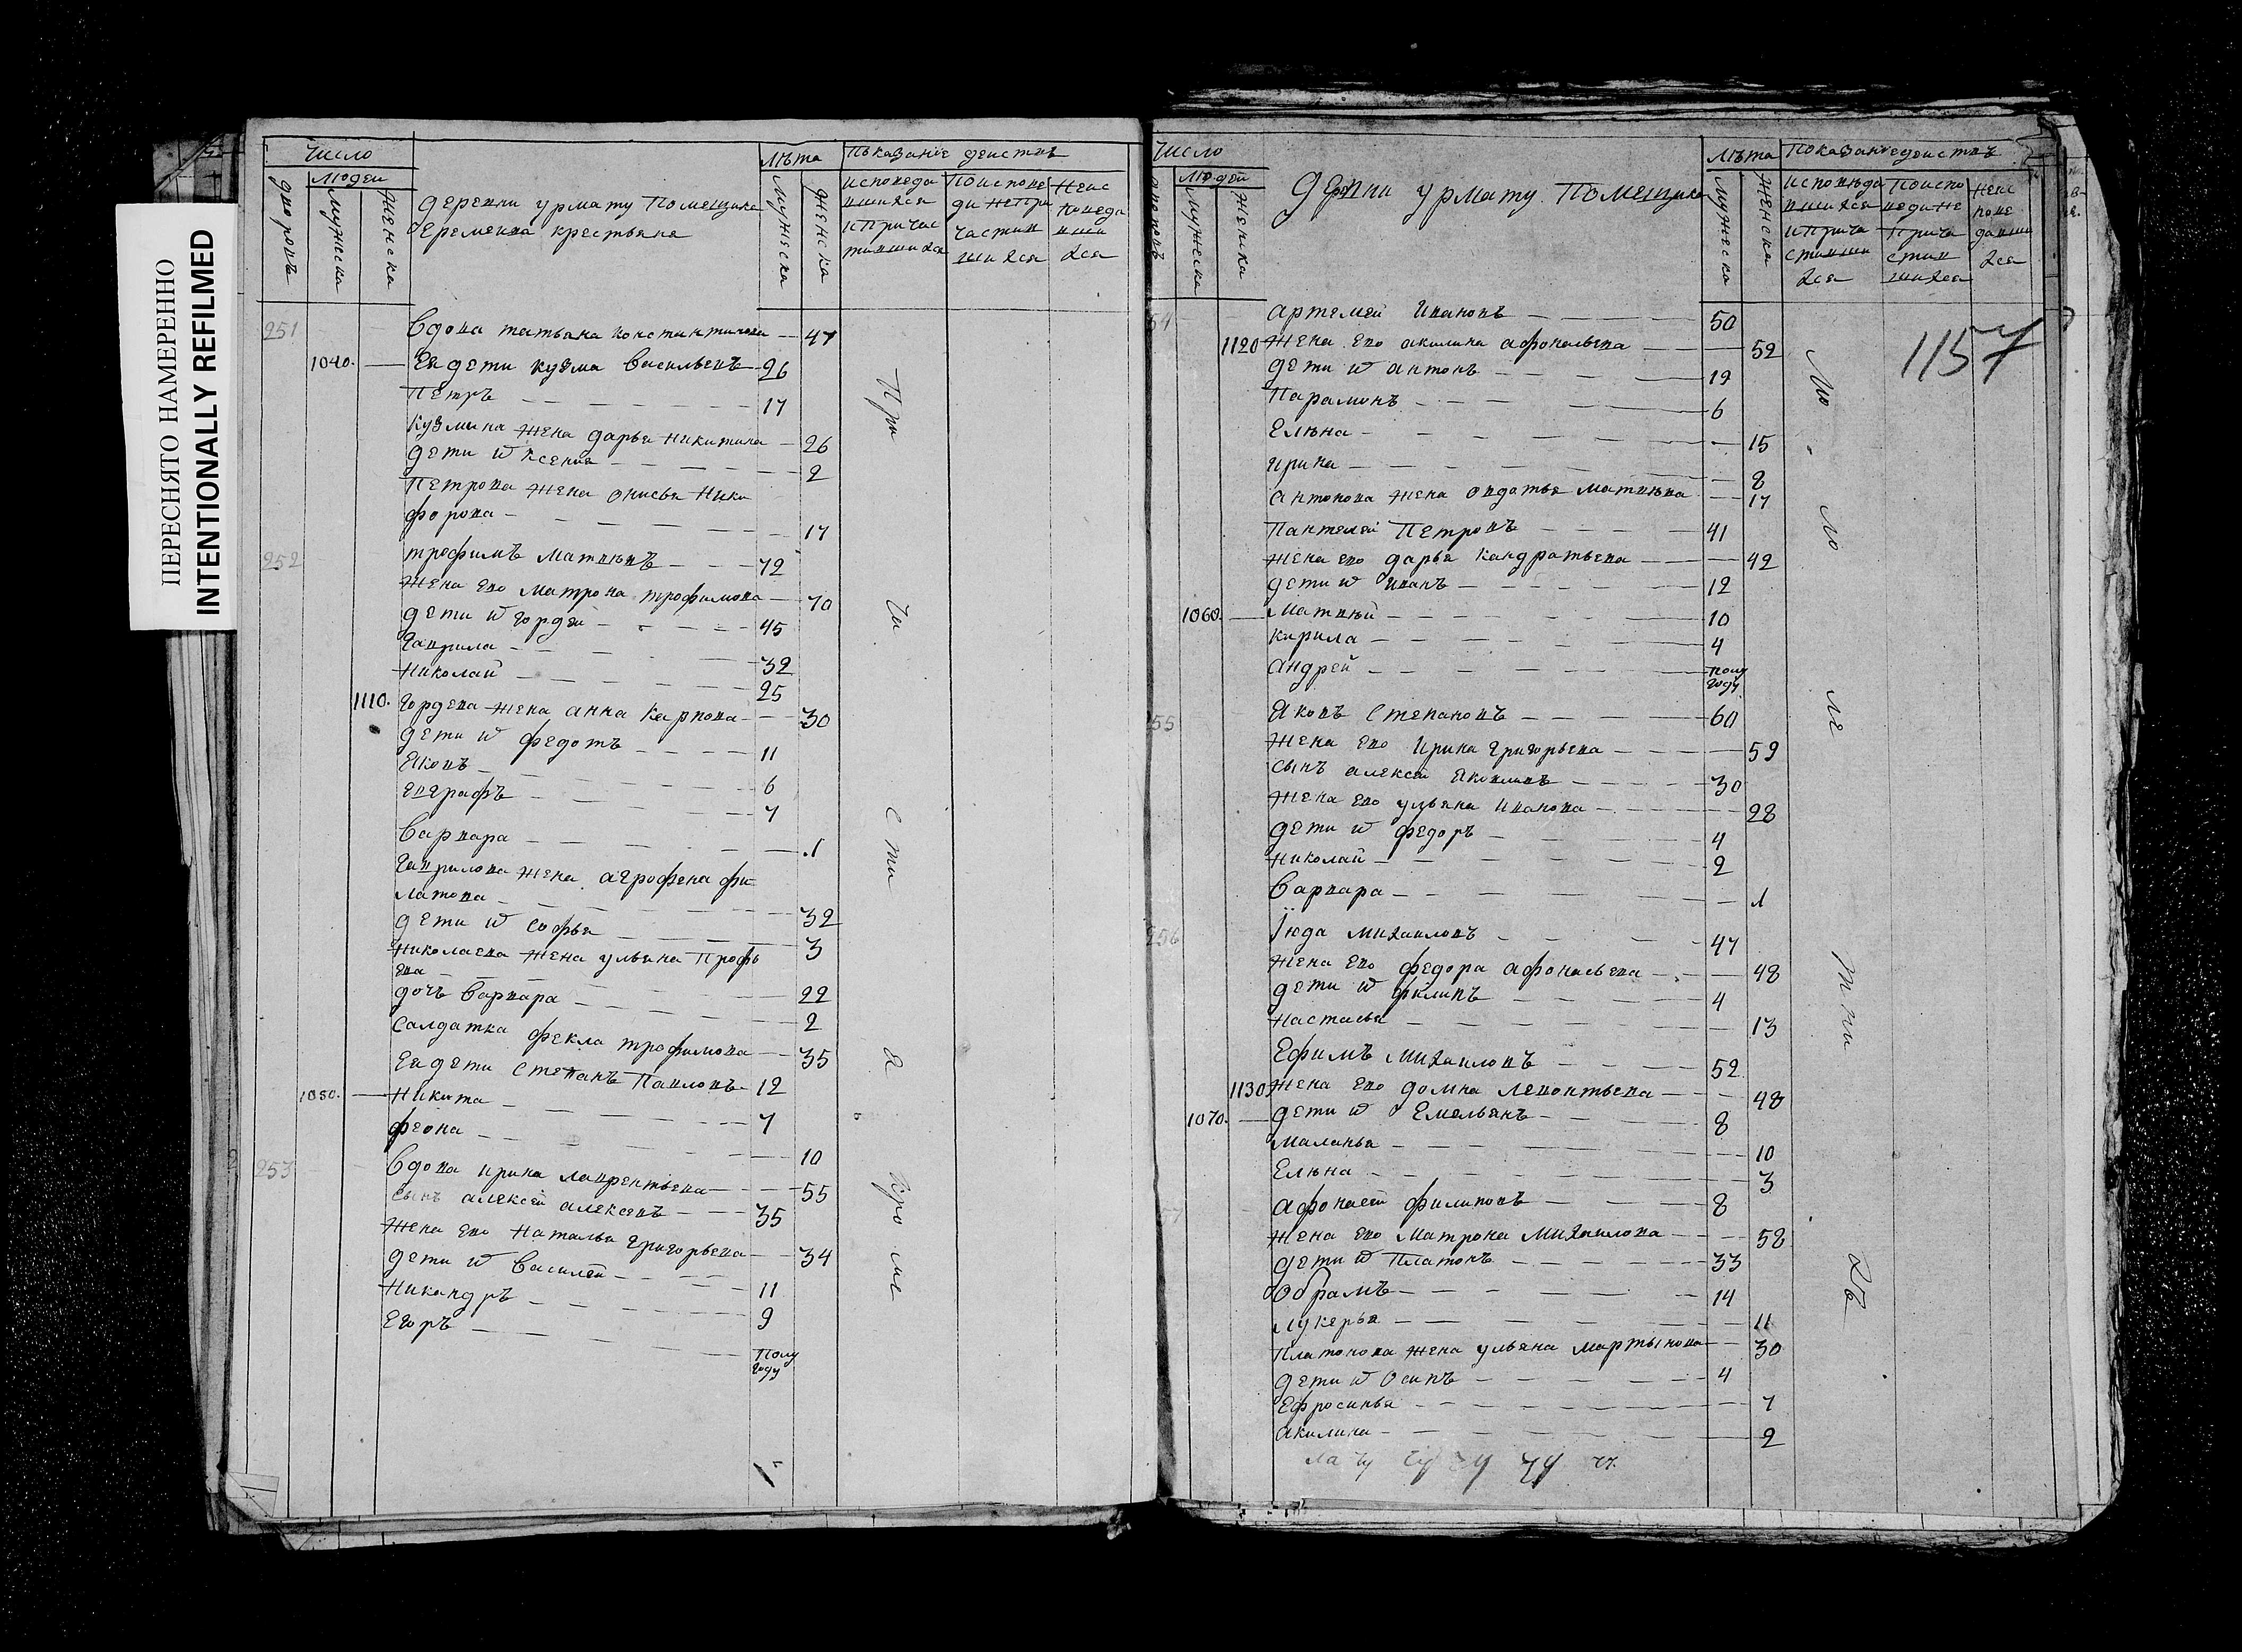 ПЕРЕСНЯТО НАМЕРЕННО
INTENTIONALLY REFILMED
число
людеи
дворовъ
мужеска
женска
деревни урмату Помещика
Еремеива крестьяне
лѣта
мужеска
женска
Показание деистивъ
исповеда
вшихся
и Причас
тившихся
По испове
ди непри
частив
шихся
неис
поведа
вши
хся
251 вдова татьяна константинова 47
1040. Ея дети кузма васильевъ 26
Петръ 17
кузмина жена дарья никитина 26
дети ѿ ксения 2
Петрова жена онисья Ники
форова 17
252 трофимъ матвѣевъ 72
жена ево матрона трофимова 70
дети ѿ гордеи 45
гаврила 32
николаи 25
1110. гордева жена анна карпова 30
дети ѿ федотъ 11
яковъ 6
евграфъ 7
варвара 1
гаврилова жена агрофена фи
латова 32
дети ѿ софья 3
николаева жена ульяна Профь
ева 22
дочь варвара 2
салдатка фекла трофимова 35
Ея дети степанъ Павловъ 12
1050. никита 7
феона 10
253 вдова ирина лаврентьева 55
сынъ алексеи алексевъ 35
жена ево наталья григорьева 34
дети ѿ василеи 11
никандръ 9
Егоръ Полу
году
При ча сти я кро ме
число
людеи
дворовъ
мужеска
женска
деревни урмату Помещика
лѣта
мужеска
женска
Показание деиствъ
исповѣда
вшихся
и Прича
стивши
хся
Поиспо
веди не
Прича
стив
шихся
Неис
пове
давши
хся
1157
54 артемеи Ивановъ 50
1120 жена ево акилина афонасьева 52
дети ѿ антонъ 19
Парамонъ 6
Елѣна 15
ирина 8
антонова жена овдотья матвѣева 17
Пантелеи Петровъ 41
жена ево дарья кандратьева 42
дети ѿ иванъ 12
1060. матвѣй 10
кирила 4
андреи Полу
году
255 яковъ степановъ 60
жена ево ирина григорьева 59
сынъ алексеи яковлевъ 30
жена ево ульяна иванова 28
дети ѿ федоръ 4
николаи 2
варвара 1
256 Їюда михаиловъ 47
жена ево федора афонасьева 48
дети ѿ филипъ 4
настасья 13
Ефимъ михаиловъ 52
1130 жена ево домна левонтьева 48
1070. дети ѿ Емельянъ 8
маланья 10
Елѣна 3
афонасеи филиповъ 8
жена ево матрона михаилова 58
дети ѿ Платонъ 33
обрамъ 14
лукерья 11
Платонова жена ульяна мартынова 30
дети ѿ осипъ 4
Ефросинья 7
акилина 2
мо ло ле тни хъ